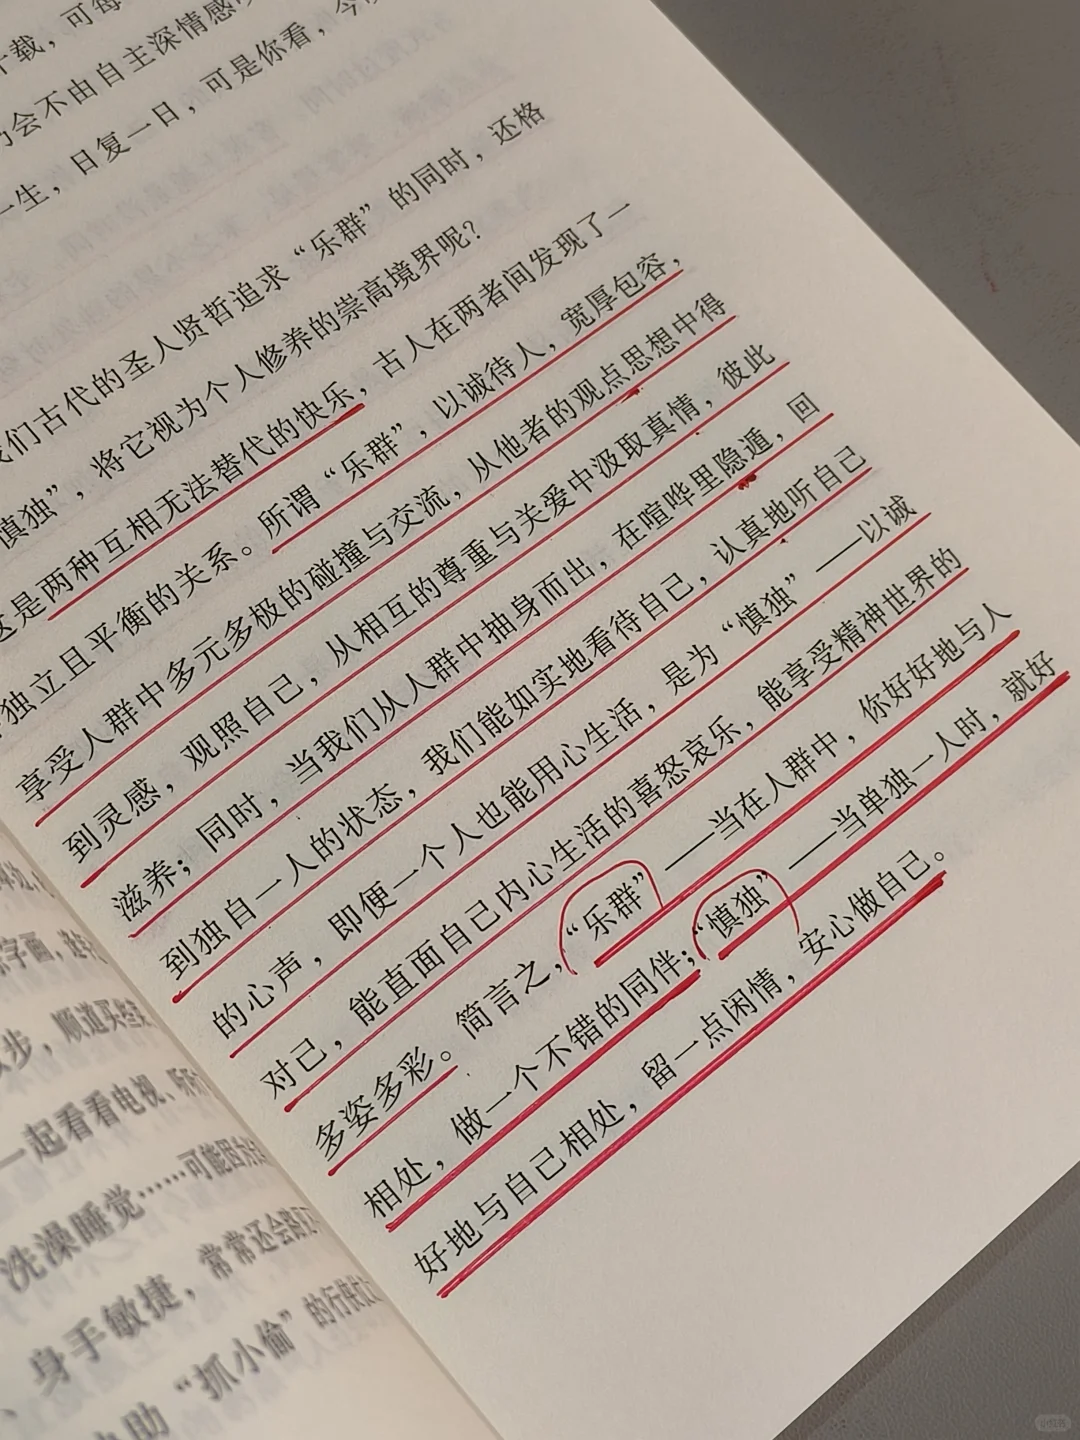 载，可每
会不由自主深情感
一生，日复一日，可是你看，今
们古代的圣人贤哲追求“乐群”的同时，还格
慎独”，将它视为个人修养的崇高境界呢？
这是两种互相无法替代的快乐，古人在两者间发现了一
独立且平衡的关系。所谓“乐群”，以诚待人，宽厚包容，
享受人群中多元多极的碰撞与交流，从他者的观点思想中得
到灵感，观照自己，从相互的尊重与关爱中汲取真情，彼此
滋养；同时，当我们从人群中抽身而出，在喧哗里隐遁，回
到独自一人的状态，我们能如实地看待自己，认真地听自己
的心声，即便一个人也能用心生活，是为“慎独”——以诚
对己，能直面自己内心生活的喜怒哀乐，能享受精神世界的
多姿多彩。简言之，“乐群”——当在人群中，你好好地与人
相处，做一个不错的同伴；“慎独”——当单独一人时，就好
好地与自己相处，留一点闲情，安心做自己。
字画，
步，顺道买些
一起看看电视、
洗澡睡觉……可能因为
身手敏捷，常常还会
助“抓小偷”的行